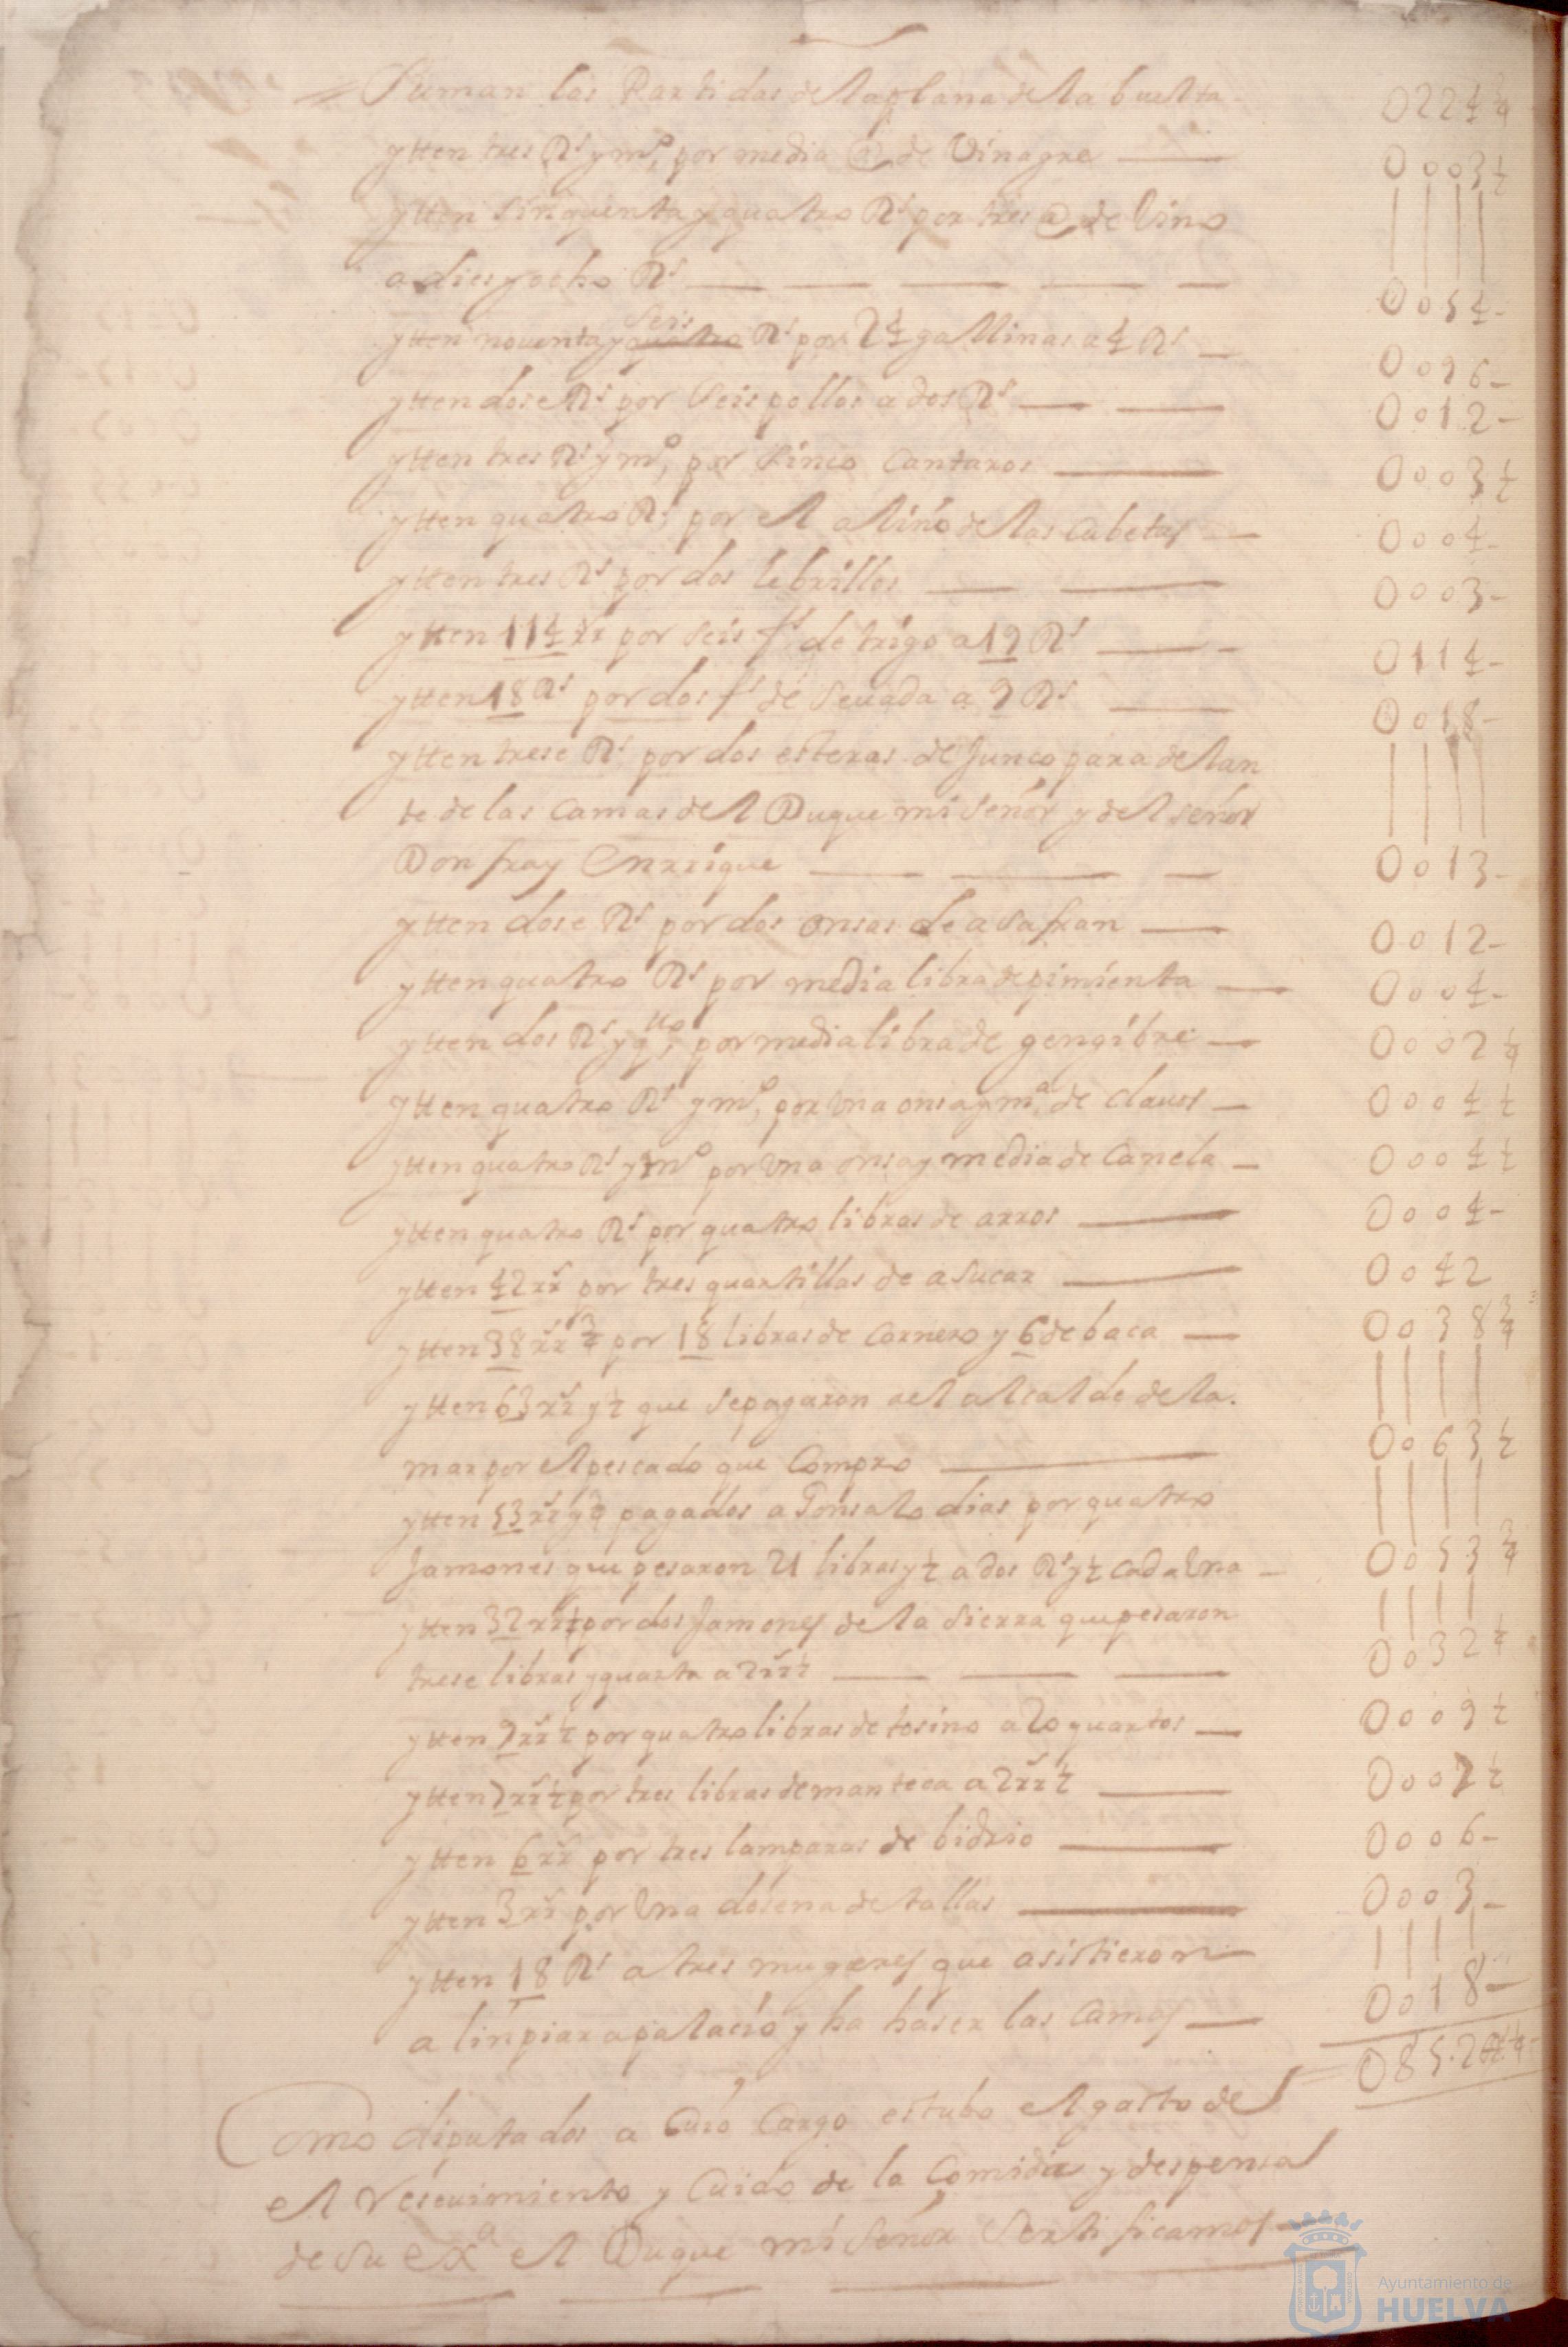 Suman las Partidas de la plana de la buelta 0224 3/4
ytten tres Rs y mº, por media @ de Vinagre 0003 1/2
ytten sinquenta y quatro Rs por tres @ de Vino
a dies y ocho Rs 0054
ytten noventa y quatro seis Rs por 24 gallinas a 4 Rs 0096
ytten dose Rs por seis pollos a dos Rs 0012
ytten tres Rs y mº, por sinco cantaros 0003 1/2
ytten quatro Rs por el aliño de las cubetas 0004
ytten tres Rs por dos lebrillos 0003
ytten 114 rs por seis fs de trigo a 19 Rs 0114
ytten 18 Rs por dos fs de sevada a 9 Rs 0018
ytten trese Rs por dos esteras de Junco para delan
te de las camas del Duque mi señor y del señor
Don fray Enrrique 0013
ytten dose Rs por dos onsas de asafran 0012
ytten quatro Rs por media libra de pimienta 0004
ytten dos Rs y qtto, por media libra de gengibre 0002 1/4
ytten quatro Rs y mº, por Una onsa y mª de clavos 0004 1/2
ytten quatro Rs y mº por Una onsa y media de Canela 0004 1/2
ytten quatro Rs por quatro libras de arros 0004
ytten 42 rs por tres quartillas de asucar 0042
ytten 38 rs 3/4 por 18 libras de Carnero y 6 de baca 0038 3/4
ytten 63 rs y 1/2 que se pagaron a el alcalde de la
mar por el pescado que Compro 0063 1/2
ytten 53 rs y 3/4 pagados a Gonsalo dias por quatro
Jamones que pesaron 21 libras y 1/2 a dos Rs y 1/2 cada Una 0053 3/4
ytten 32 rs por dos Jamones de la sierra que pesaron
trese libras y quarta a 2 rs 1/2 0032 1/4
ytten 9 rs 1/2 por quatro libras de tosino a 20 quartos 0009 1/2
ytten 7 rs 1/2 por tres libras de manteca a 2 rs 1/2 0007 1/2
ytten 6 rs por tres lamparas de bidrio 0006
ytten 3 rs por Una dosena de tallas 0003
ytten 18 Rs a tres mugeres que asistieron
a linpiar a palacio y ha haser las camas 0018
0852
Como diputados a Cuio Cargo estubo el gasto de
el resevimiento y Cuido de la Comida y despensa
de su exª el Duque mi señor Sertificamos
Ayuntamiento de
HUELVA